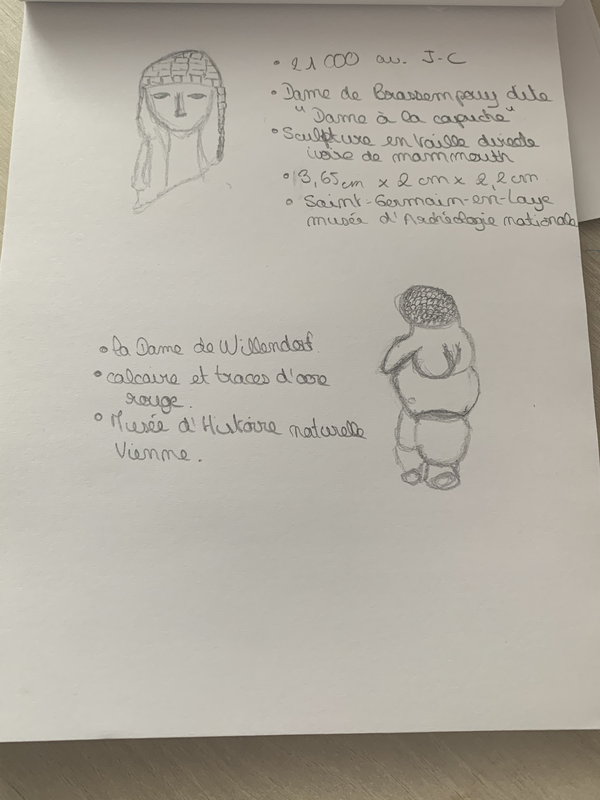 • 21 000 av. J-C
• Dame de Brassempouy dite
"Dame à la capuche"
• Sculpture en taille directe
ivoire de mammouth
• 3,65cm x 2 cm x 2,2cm
• Saint-Germain-en-Laye
musée d'Archéologie nationale
• la Dame de Willendorf.
• calcaire et traces d'ocre
rouge.
• Musée d'Histoire naturelle
Vienne.